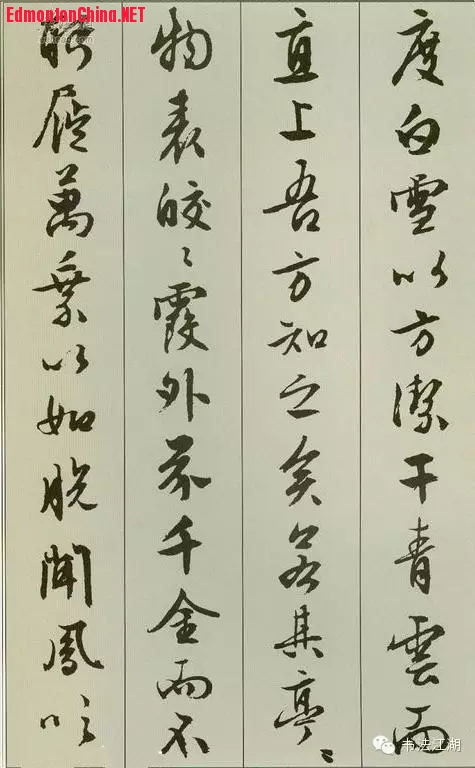 度白雪以方潔干青雲而
直上吾方知之矣若其亭〻
物表皎〻霞外芥千金而不
盼屣萬乘以如脫聞鳳吹
EdmontonChina.NET
书法江湖